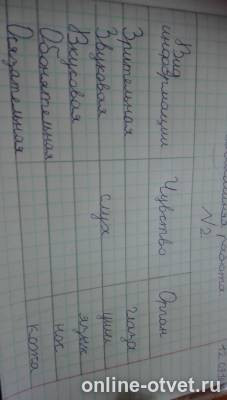 работа
№2
Вид информации Чувство Орган
Зрительная глаза
Звуковая слух уши
Вкусовая язык
Обонятельная нос
Осязательная кожа
online-otvet.ru